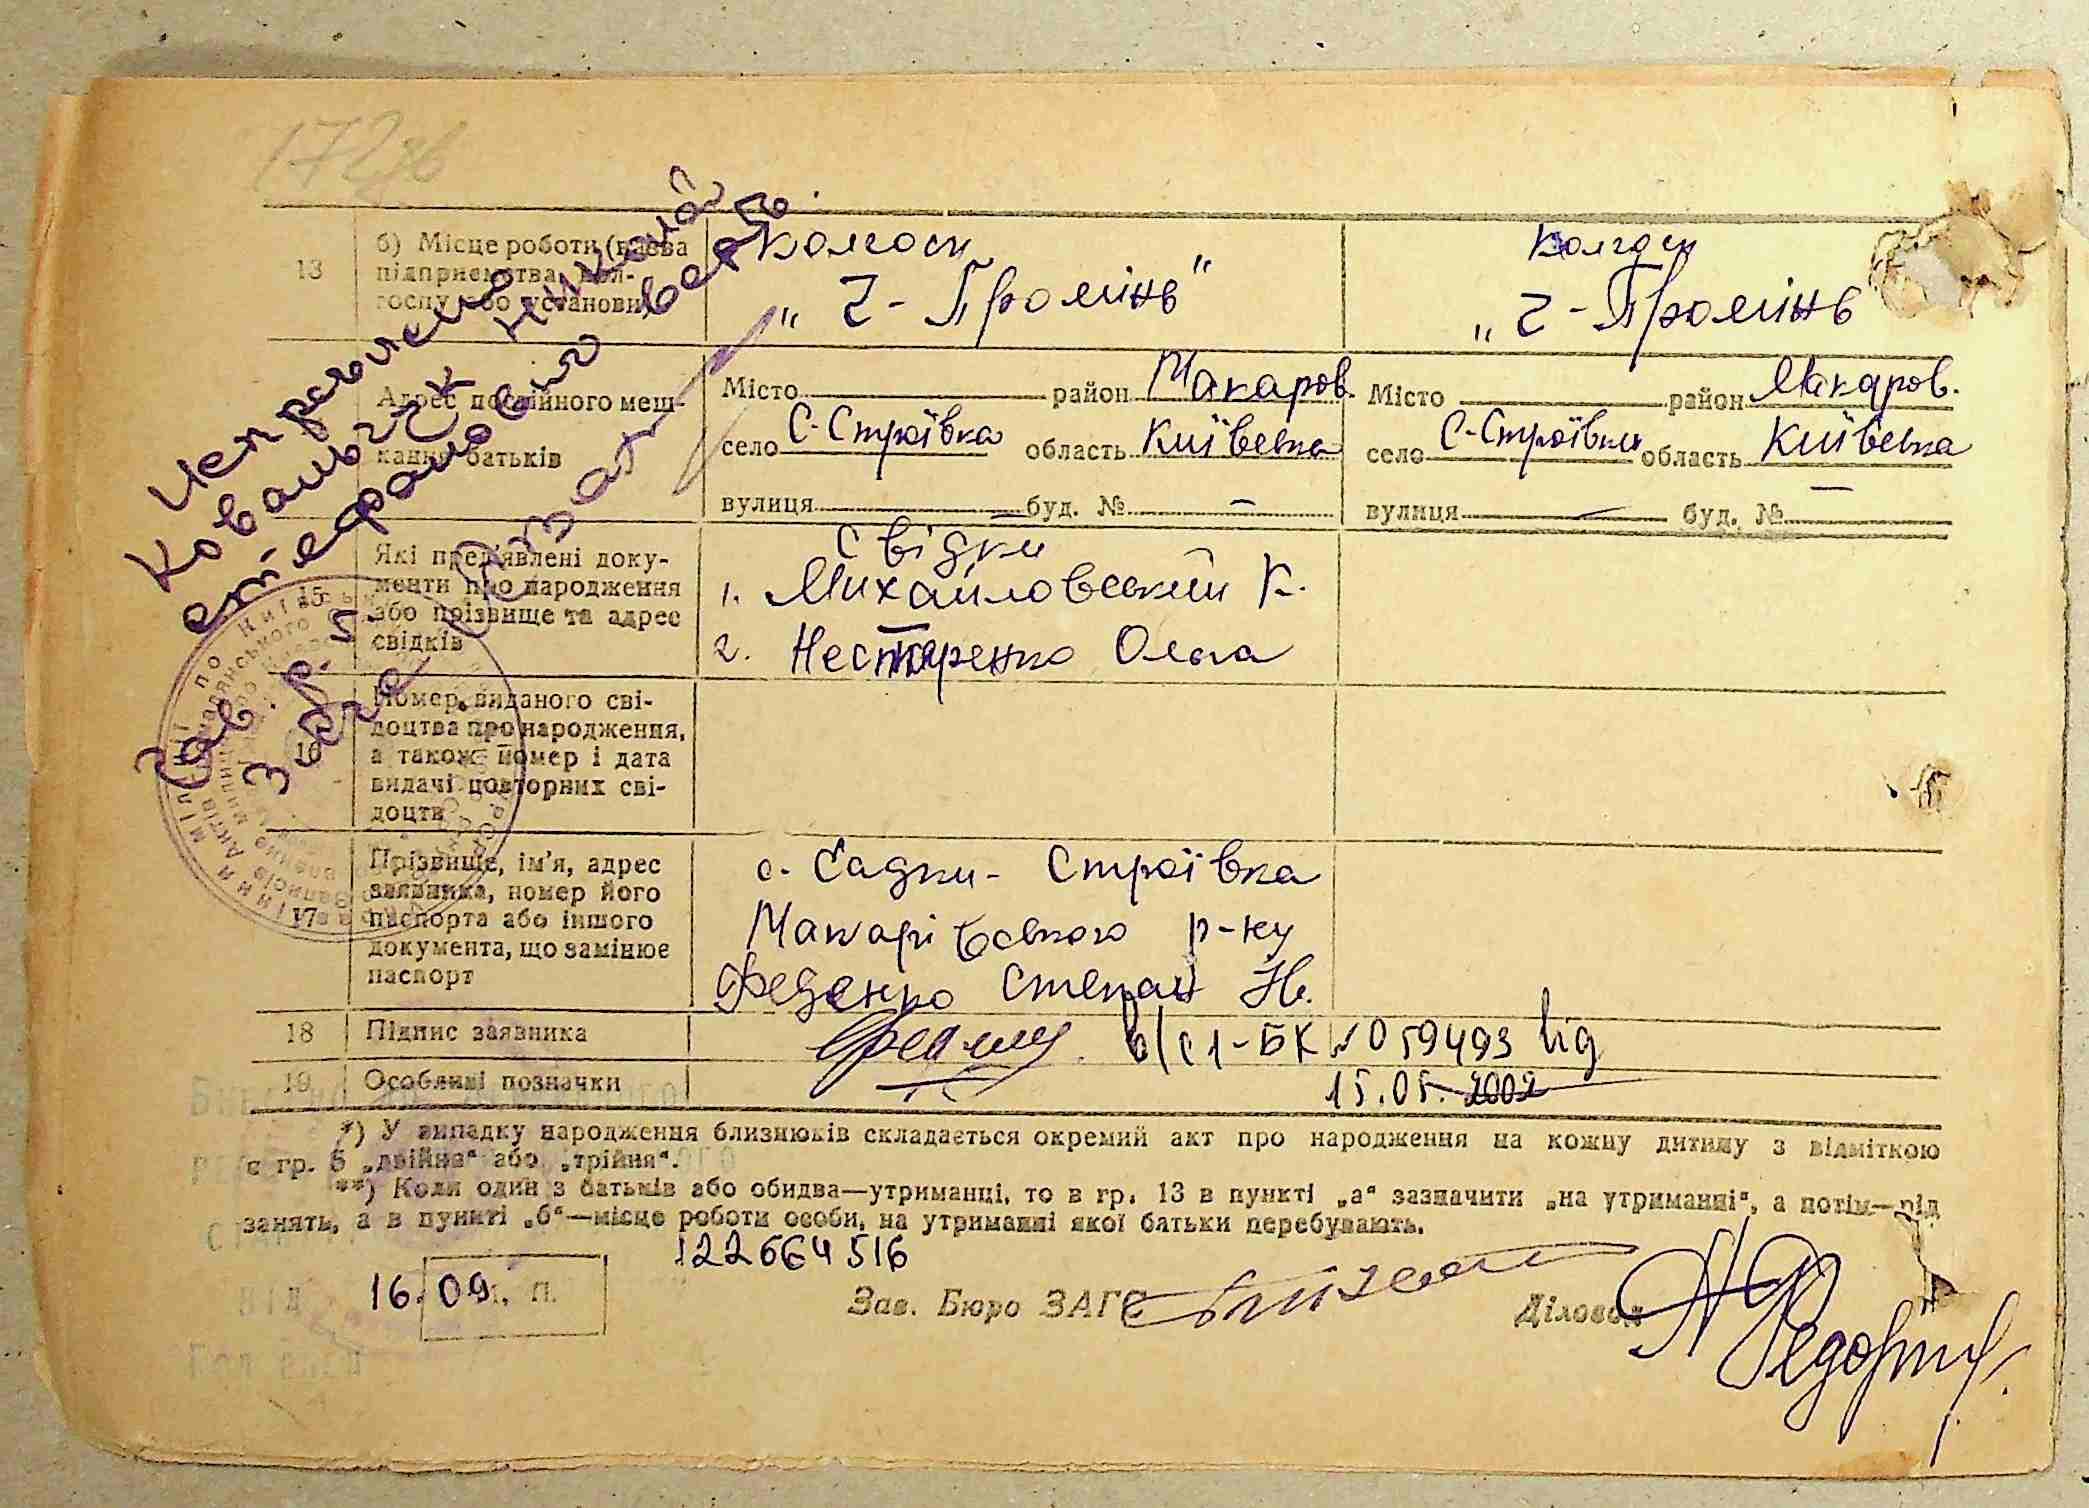 172
13
б) Місце роботи (назва
підприємства, кол-
госпу або установи
колгосп
„ 2 - Промінь"
колгосп
„ 2 - Промінь
Адрес постійного меш-
кання батьків
Місто район Макаров.
село С-Строївка область Київська
вулиця — буд. № —
Місто район Макаров.
село С-Строївка область Київська
вулиця — буд. № —
15
Які пред'явлені доку-
менти про народження
або прізвище та адрес
свідків
Свідки
1. Михайловський К.
2. Нестеренко Ольга
16
Номер виданого сві-
доцтва про народження,
а також номер і дата
видачі повторних сві-
доцтв
17
Прізвище, ім'я, адрес
заявника, номер його
паспорта або іншого
документа, що замінює
паспорт
с. Садки - Строївка
Макарівського р-ну
Феденко Степан Н.
18
Підпис заявника
в/с 1-БК №059493 від
15.05. 2002
19
Особливі позначки
*) У випадку народження близнюків складається окремий акт про народження на кожну дитину з відміткою
в гр. 5 „двійня" або „трійня".
**) Коли один з батьків або обидва—утриманці, то в гр. 13 в пункті „а" зазначити „на утриманні", а потім—рід
занять, а в пункті „б"—місце роботи особи, на утриманні якої батьки перебувають.
122664516
16.09
М. П.
Зав. Бюро ЗАГС
Діловод
Исправлено
Ковальчук Николай
вірить.
Зав. р.
ЗАГС